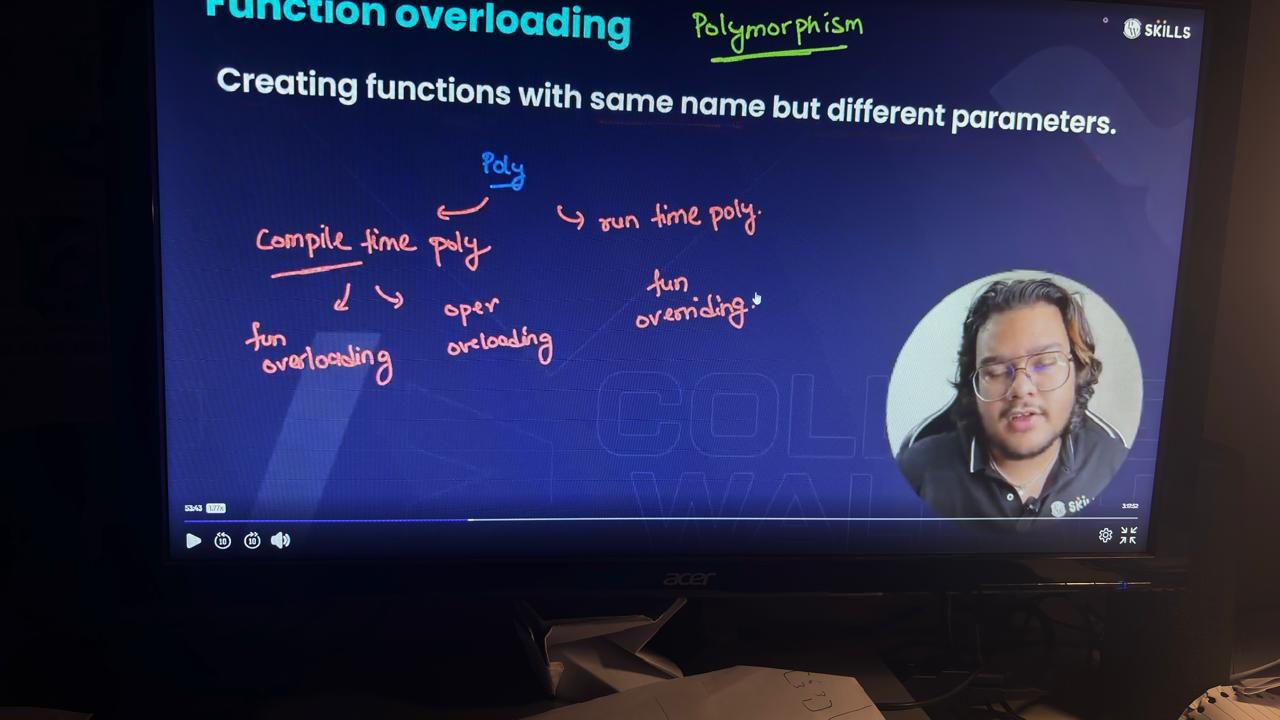 Function overloading
Polymorphism
SKILLS
Creating functions with same name but different parameters.
Poly
Compile time poly
run time poly.
fun
overloading
oper
oveloading
fun
overriding.
COLL
WAL
53:43 1.77x
3:17:52
10
10
SKI
acer